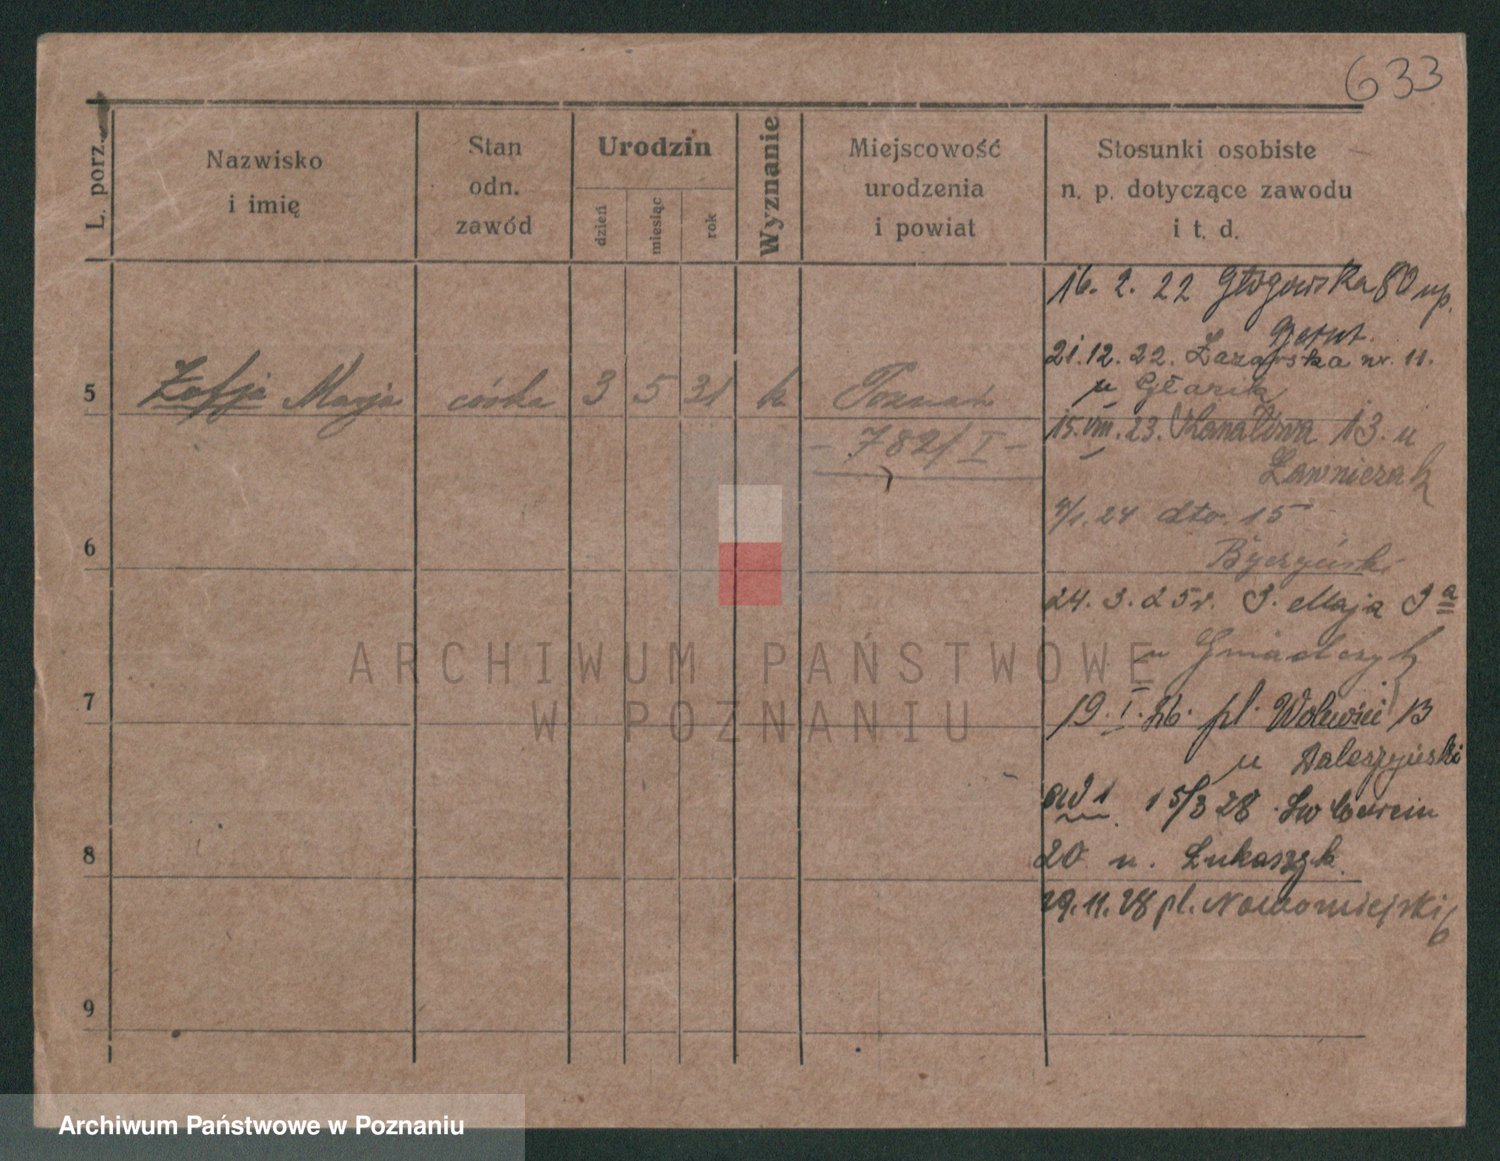 633
L. porz.
Nazwisko
i imię
Stan
odn.
zawód
Urodzin
dzień
miesiąc
rok
Wyznanie
Miejscowość
urodzenia
i powiat
Stosunki osobiste
n. p. dotyczące zawodu
i t. d.
16. 2. 22 Głogowska 80 np.
21.12.22. Łazarska nr. 11.
u
5 Zofja Marja córka 3 5 31 k Poznań
- 782/I -
15.VIII.23. Kanałowa 13. u
Ławniczak
24 dto. 15
6
Byczyński
24. 3. 25r. 3. Maja 3a
u
ARCHIWUM PAŃSTWOWE
W POZNANIU
7
19. I. 26. pl. Wolności 13
u Daleszyński
15/3 28 Św Marcin
8
20 u. Łukaszyk.
29.11.28 pl. Nowomiejski 6
9
Archiwum Państwowe w Poznaniu